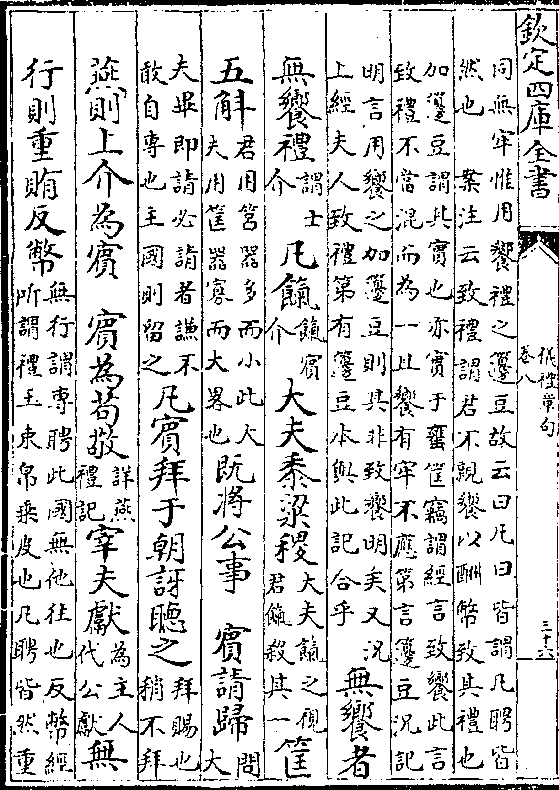 欽定四庫全書
儀禮章句
卷八
三十六
同無牢惟用饗禮之籩豆故云曰凡曰皆謂凡聘皆
然也 案注云致禮謂君不親饗以酬幣致其禮也
加籩豆謂其實也亦實于罋筐竊謂經言致饗此言
致禮不當混而為一且饗有牢不應第言籩豆況記
明言用饗之加籩豆則其非致饗明矣又況
上經夫人致禮第有籩豆本與此記合乎
無饗者
無饗禮
謂士
介
凡餼
餼賓
介
大夫黍粱稷
大夫餼之視
君餼殺其一
筐
五斛
君用筥器多而小此大
夫用筐器寡而大畧也
既將公事 賓請歸
問大
夫畢即請必請者謙不
敢自專也主國則留之
凡賓拜于朝訝聽之
拜賜也
稍不拜
燕則上介為賓 賓為苟敬
詳燕
禮記
宰夫獻
為主人
代公獻
無
行則重賄反幣
無行謂專聘此國無他往也反幣經
所謂禮玉束帛乘皮也凡聘皆然重